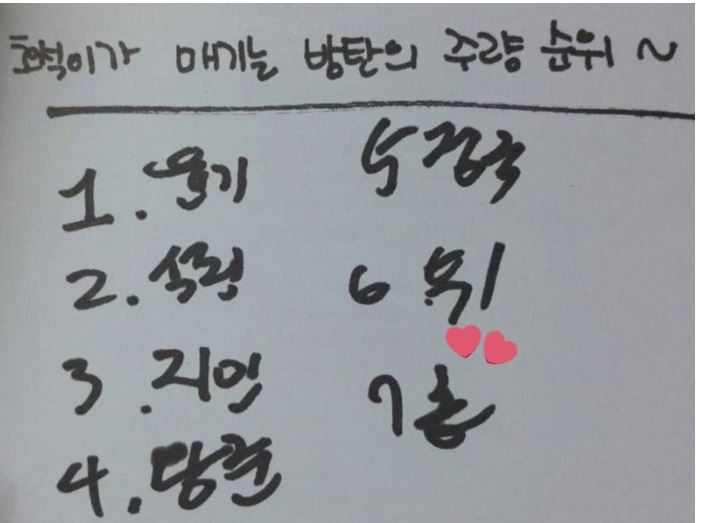 호석이가 매기는 방탄의 주량 순위 ~
1. 윤기
2. 석진
3. 지민
4. 남준
5 정국
6 뷔
7 홉